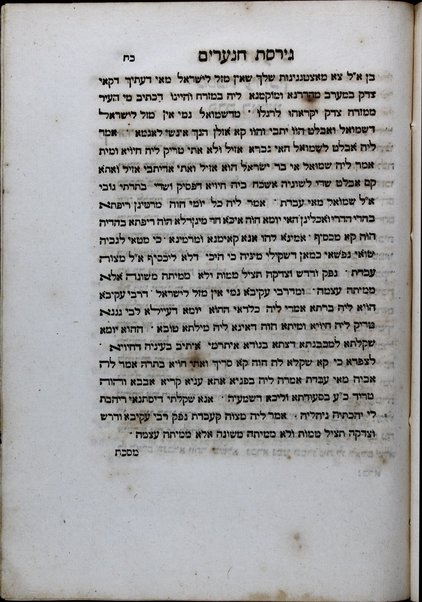 גירסת הנערים
כח
בן א״ל צא מאצטגנינות שלך שאין מזל לישראל מאי דעתיך דקאי
צדק במערב מהדרנא ומוקמנא ליה במזרח והיינו דכתיב מי העיר
ממזרח צדק יקראהו לרגלו ׃ מדשמואל נמי אין מזל לישראל
דשמואל ואבלט הוו יתבי והוו קא אזלן הנך אינשי לאגמא ׃ אמר
ליה אבלט לשמואל האי גברא אזיל ולא אתי טריק ליה חויא ומית
אמר ליה שמואל אי בר ישראל הוא אזיל ואתי אדיתבי אזיל ואתא
קם אבלט שדי לטוניה אשכח ביה חויא דפסיק ושדי בתרתי גובי
א״ל שמואל מאי עבדת ׃ אמר ליה כל יומי הוה מרמינן ריפתא
בהדי הדדי ואכלינן האי יומא הוה איכא חד מינן דלא הוה ריפתא בהדיה
הוה קא מכסיף ׃ אמינא להו אנא קאימנא וארמינא ׃ כי מטאי לגביה
שואי נפשאי כמאן דשקילי מיניה כי היכי דלא ליכסיף א״ל מצוה
עבדת ׃ נפק ודרש וצדקה תציל ממות ולא ממיתה משונה אלא
ממיתה עצמה ׃ ומדרבי עקיבא נמי אין מזל לישראל ׃ דרבי עקיבא
הויא ליה ברתא אמרי ליה כלדאי ההוא יומא דעיילא לבי גננא
טריק ליה חיויא ומיתא הוה דאיגא ליה מילתא טובא ׃ ההוא יומא
שקלתא למכבנתא דצתא בגודא איתרמי איתיב בעיניה דחיויא
לצפרא כי קא שקלא לה הוה קא סריך ואתי חויא בתרה אמר לה
אביה מאי עבדת אמרה ליה בפניא אתא עניא קריא אבבא והוה
טריד כ״ע בסעודתא וליכא דשמעיה ׃ אנא שקלתי דיסתנאי דיהבת
לי יהבתיה ניהליה ׃ אמר ליה מצוה קעבדת נפק רבי עקיבא ודרש
וצדקה תציל ממות ולא ממיתה משונה אלא ממיתה עצמה ׃
מסכת